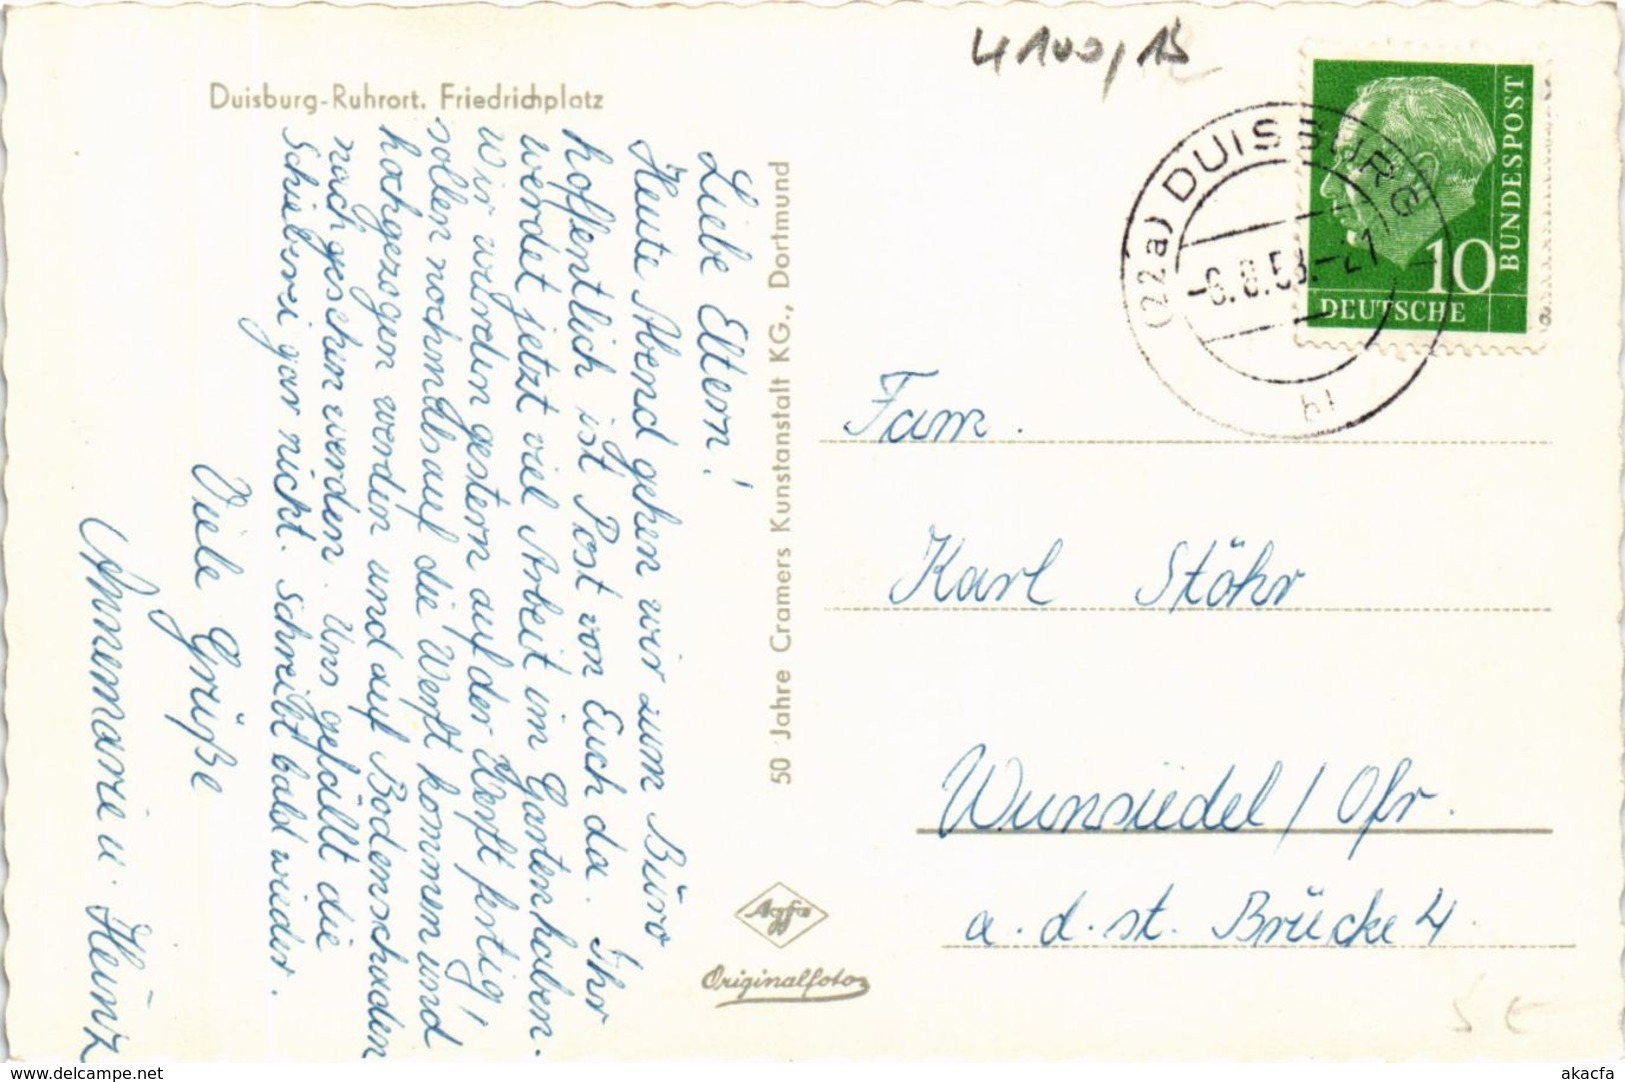 4100,15
Duisburg-Ruhrort. Friedrichplatz
Liebe Eltern!
Heute Abend gehen wir zum Büro
hoffentlich ist Post von Euch da. Ihr
werdet jetzt viel Arbeit im Garten haben.
Wir wurden gestern auf der Werft fertig!
sollen nochmals auf die Werft kommen und
hochgezogen werden und auf Bodenschaden
nachgesehen werden. Uns gefällt die
Schieberei gar nicht. Schreibt bald wieder.
Viele Grüße
Annemarie u. Heinz
50 Jahre Cramers Kunstanstalt KG., Dortmund
Agfa
Originalfoto
(22a) DUISBURG
-6.8.58.-21
h1
DEUTSCHE
BUNDESPOST
10
Fam.
Karl Stöhr
Wunsiedel / Ofr.
a. d. st. Brücke 4.
5 €
www.delcampe.net
akacfa